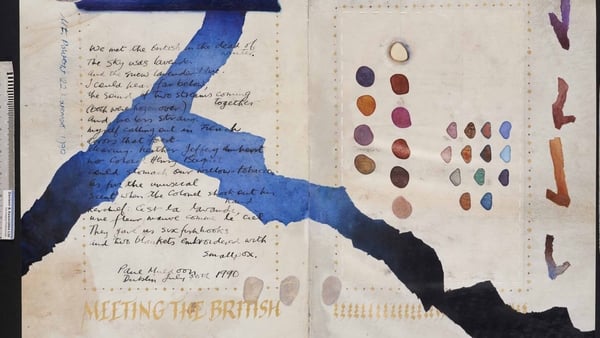 We met the British in the dead of winter.
The sky was lavender
and the snow lavender-blue.
I could hear, far below,
the sound of two streams coming together
(both were frozen over)
and, no less strange,
myself calling out in French
across that forest
clearing. Neither Jeffrey Amherst
nor Colonel Henry Bouquet
could stomach our willow-tobacco.
As for the unusual
scent when the Colonel shook out his
kerchief: C'est la lavande,
une fleur mauve comme le ciel.
They gave us six fishhooks
and two blankets embroidered with
smallpox.
Paul Muldoon
Dublin July 1990
MEETING THE BRITISH